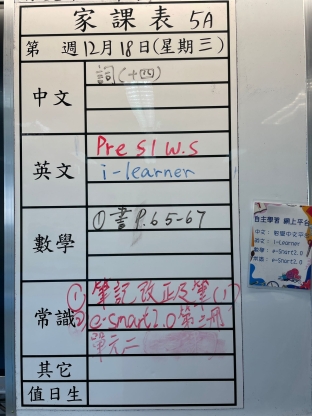 家課表 5A
第 週 12月18日(星期三)
中文 詞(十四)
英文 Pre S1 W.S
i-learner
數學 ①書P.65-67
常識 ①筆記改正及筆(1)
②e-smart2.0第三冊
單元二
其它
值日生
自主學習 網上平台
i-Learner
e-Smart2.0
e-Smart2.0